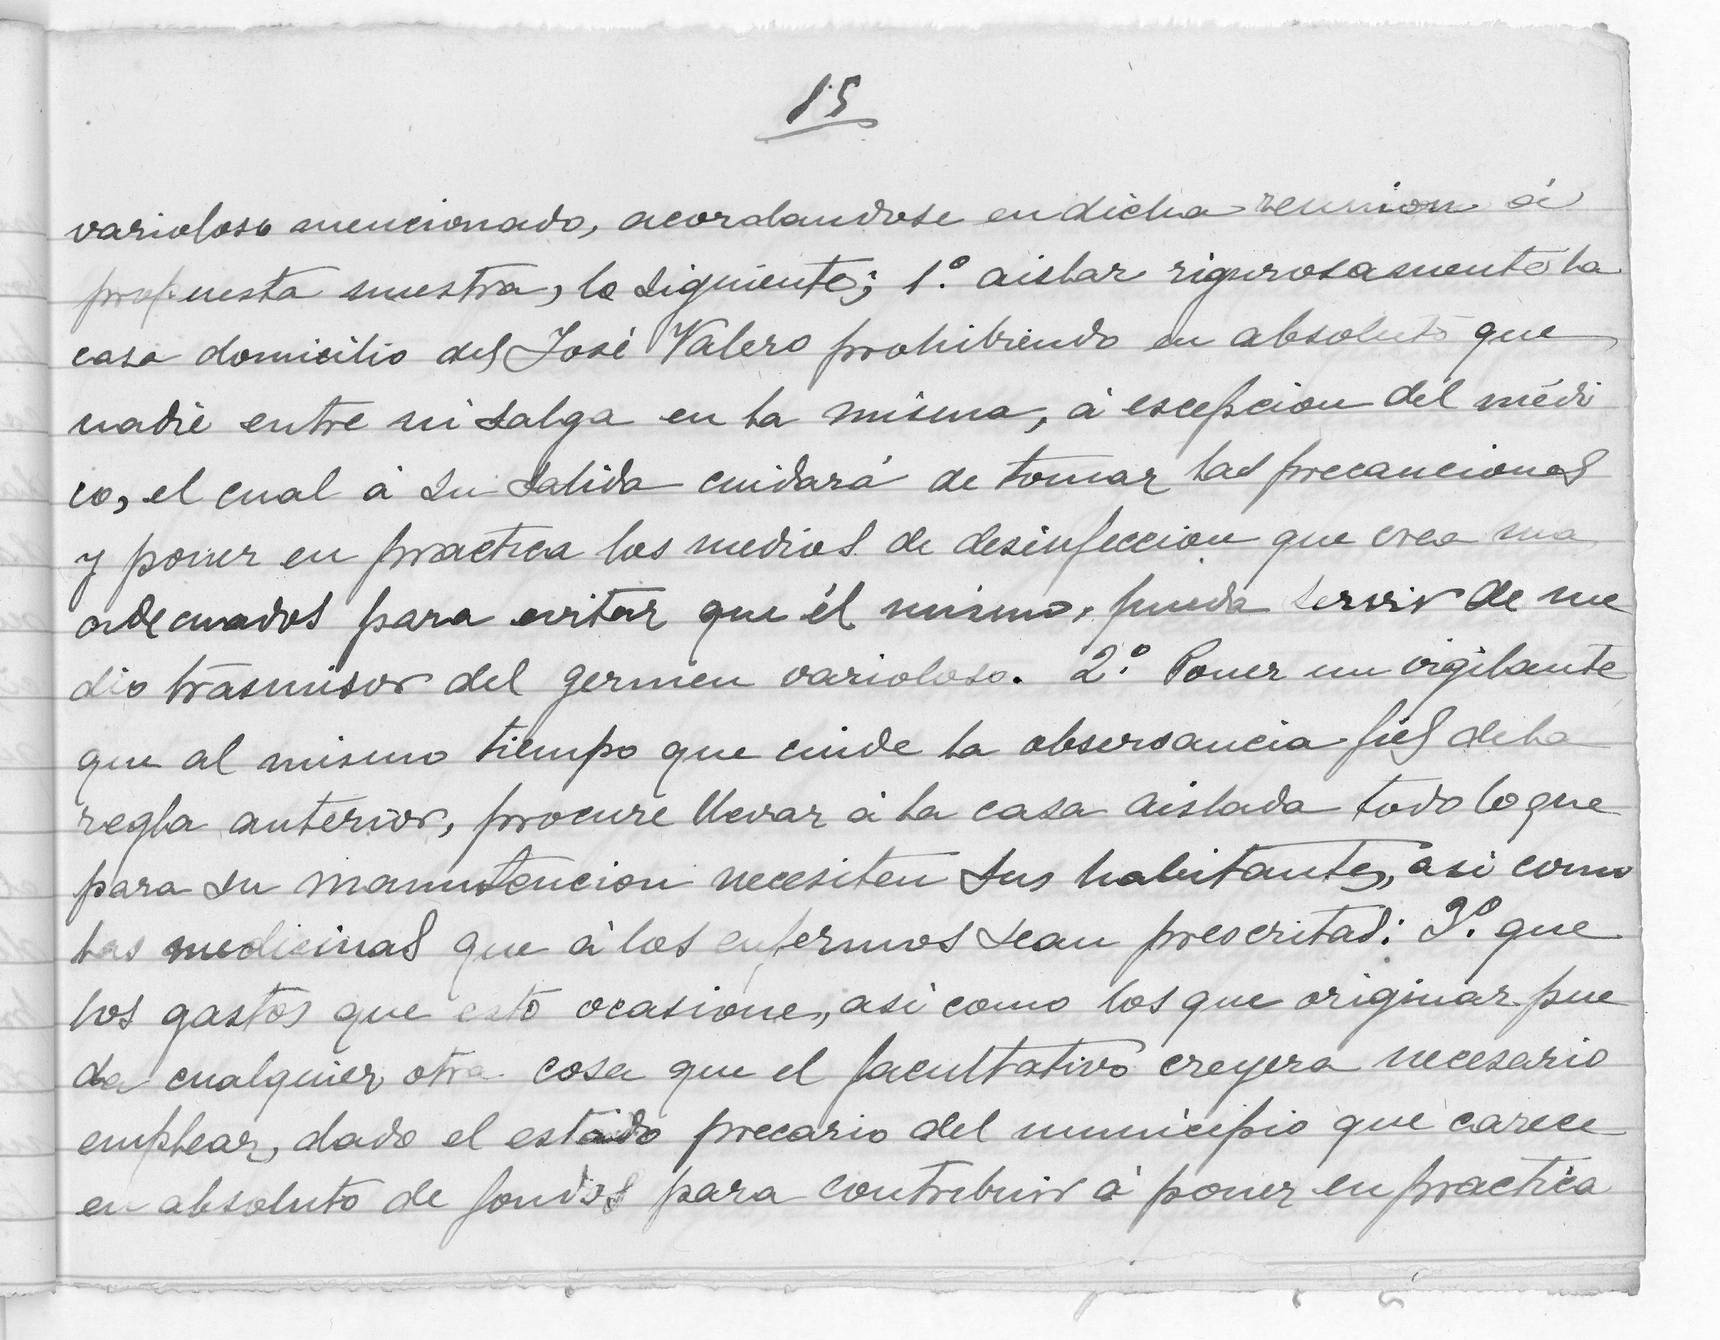 15
varioloso mencionado, acordandose en dicha reunion á
propuesta nuestra, lo siguiente; 1.º aislar rigurosamente la
casa domicilio del José Valero prohibiendo en absoluto que
nadie entre ni salga en la misma, á escepcion del médi
co, el cual á su salida cuidará de tomar las precauciones
y poner en practica los medios de desinfeccion que crea mas
adecuados para evitar que él mismo, pueda servir de me
dio trasmisor del germen varioloso. 2.º Poner un vigilante
que al mismo tiempo que cuide la observancia fiel de la
regla anterior, procure llevar á la casa aislada todo lo que
para su manutencion necesiten sus habitantes, asi como
las medicinas que á los enfermos sean prescritas: 3.º que
los gastos que esto ocasione, asi como los que originar pue
da cualquier otra cosa que el facultativo creyera necesario
emplear, dado el estado precario del municipio que carece
en absoluto de fondos para contribuir á poner en practica